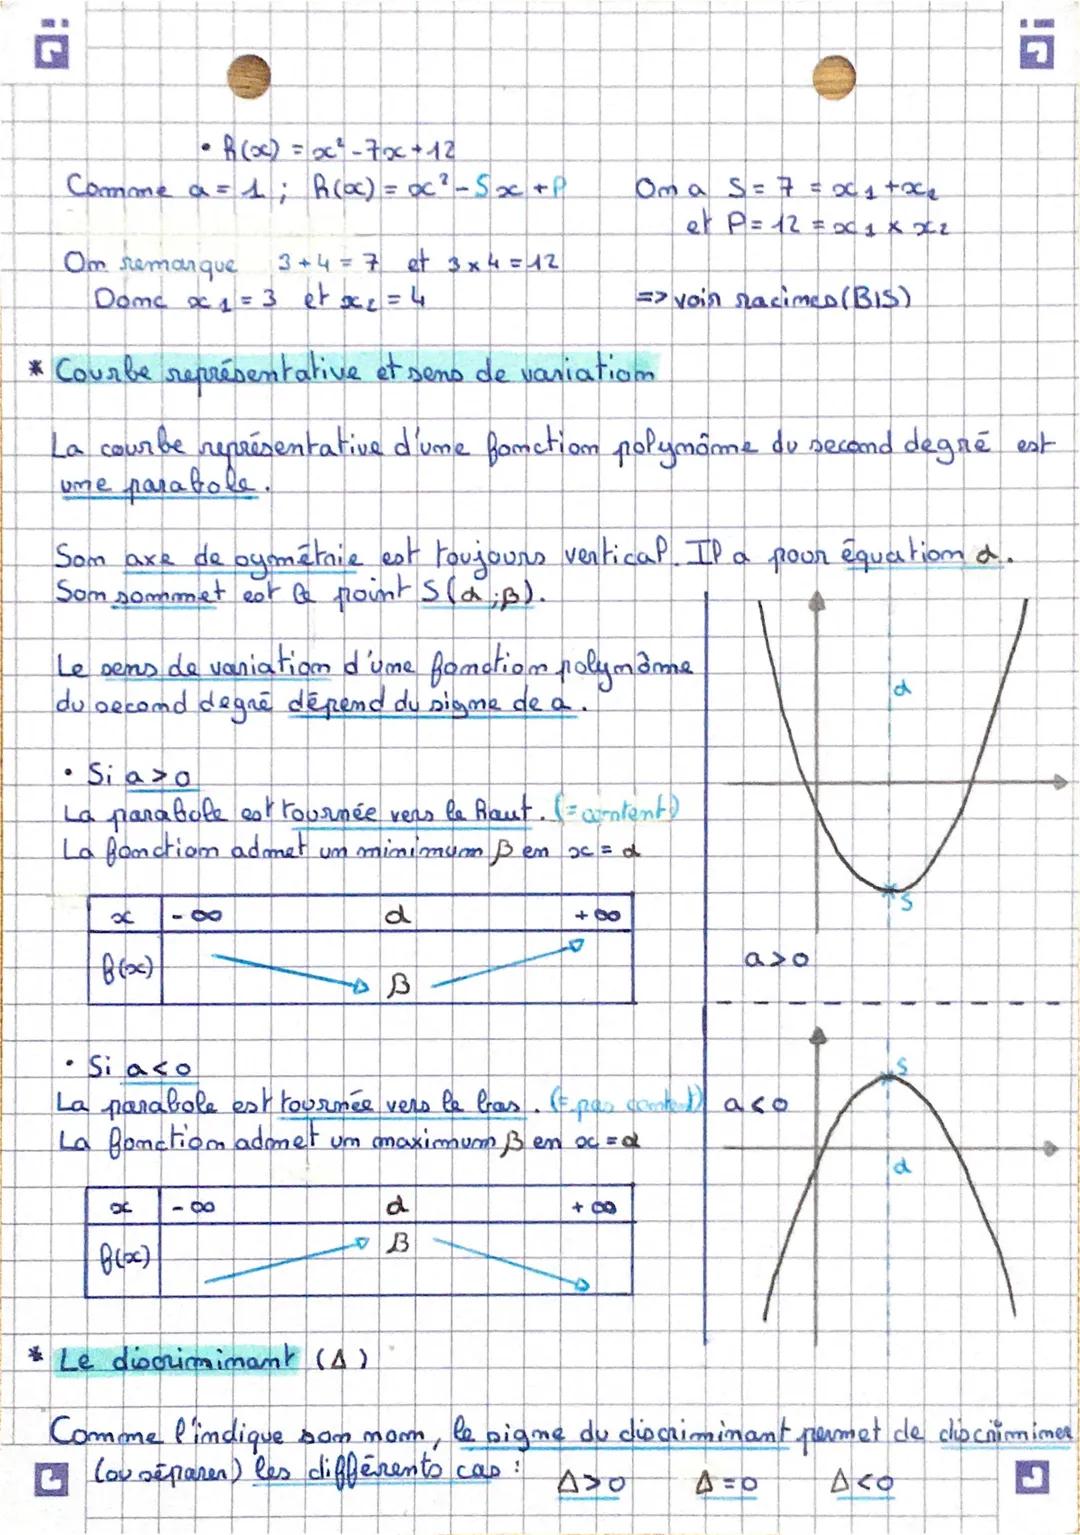 • h(x) = x² - 7x + 12
Comme a = 1 ; h(x) = x² - Sx + P
On a S = 7 = x₁ + x₂
et P = 12 = x₁ × x₂
On remarque 3 + 4 = 7 et 3 × 4 = 12
Donc x₁ = 3 et x₂ = 4
=> voir racines (BIS)
* Courbe représentative et sens de variation
La courbe représentative d'une fonction polynôme du second degré est
une parabole.
Son axe de symétrie est toujours vertical. Il a pour équation α.
Son sommet est le point S(α ; β).
Le sens de variation d'une fonction polynôme
du second degré dépend du signe de a.
• Si a > 0
La parabole est tournée vers le haut. (= content)
La fonction admet un minimum β en x = α
x -∞ α +∞
f(x) β
α
S
a > 0
• Si a < 0
La parabole est tournée vers le bas. (= pas content)
La fonction admet un maximum β en x = α
x -∞ α +∞
f(x) β
S
a < 0
α
* Le discriminant (Δ)
Comme l'indique son nom, le signe du discriminant permet de discriminer
(ou séparer) les différents cas :
Δ > 0 Δ = 0 Δ < 0